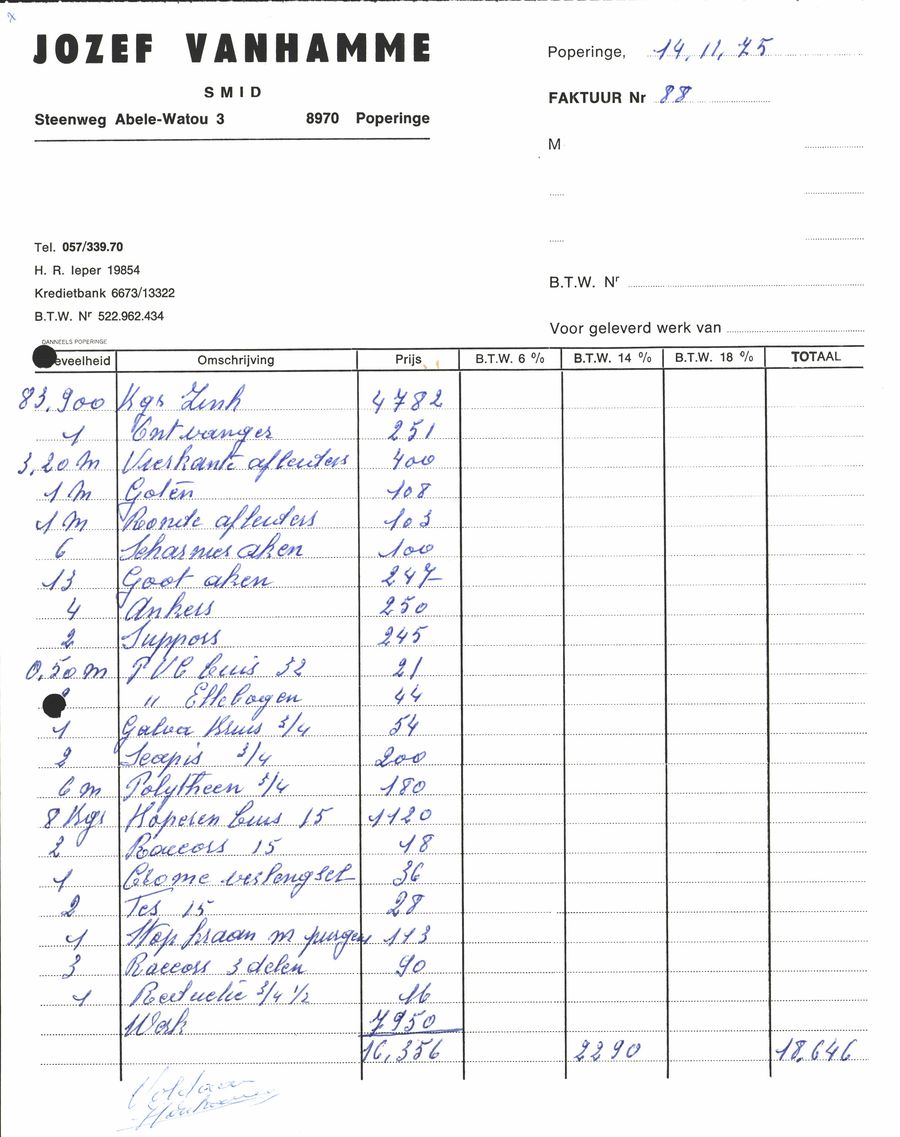 JOZEF VANHAMME
SMID
Steenweg Abele-Watou 3 8970 Poperinge
Poperinge, 14, 11, 75
FAKTUUR Nr 88
M
Tel. 057/339.70
H. R. Ieper 19854
Kredietbank 6673/13322
B.T.W. Nr 522.962.434
B.T.W. Nr
Voor geleverd werk van
DANNEELS POPERINGE
eveelheid Omschrijving Prijs B.T.W. 6 % B.T.W. 14 % B.T.W. 18 % TOTAAL
83,900 Kgs Zink 4782
1 Ontvanger 251
3,20 m Vierkante afleiders 400
1 m Goten 108
1 m Ronde afleiders 103
6 Scharnier aken 100
13 Goot aken 247
4 Ankers 250
2 Suppors 245
0,50 m PVC buis 32 21
2 " Ellebogen 44
1 Galva Kruis 3/4 54
2 3/4 200
6 m Polytheen 3/4 180
8 Kgs Koperen buis 15 1120
2 Raccors 15 18
1 Crome verlengset 36
2 Tes 15 28
1 Stop kraan m purgeu 113
3 Raccors 3 delen 90
1 Reductie 3/4 1/2 16
Werk 7950
16,356 2290 18,646
Voldaan
Vanhamme